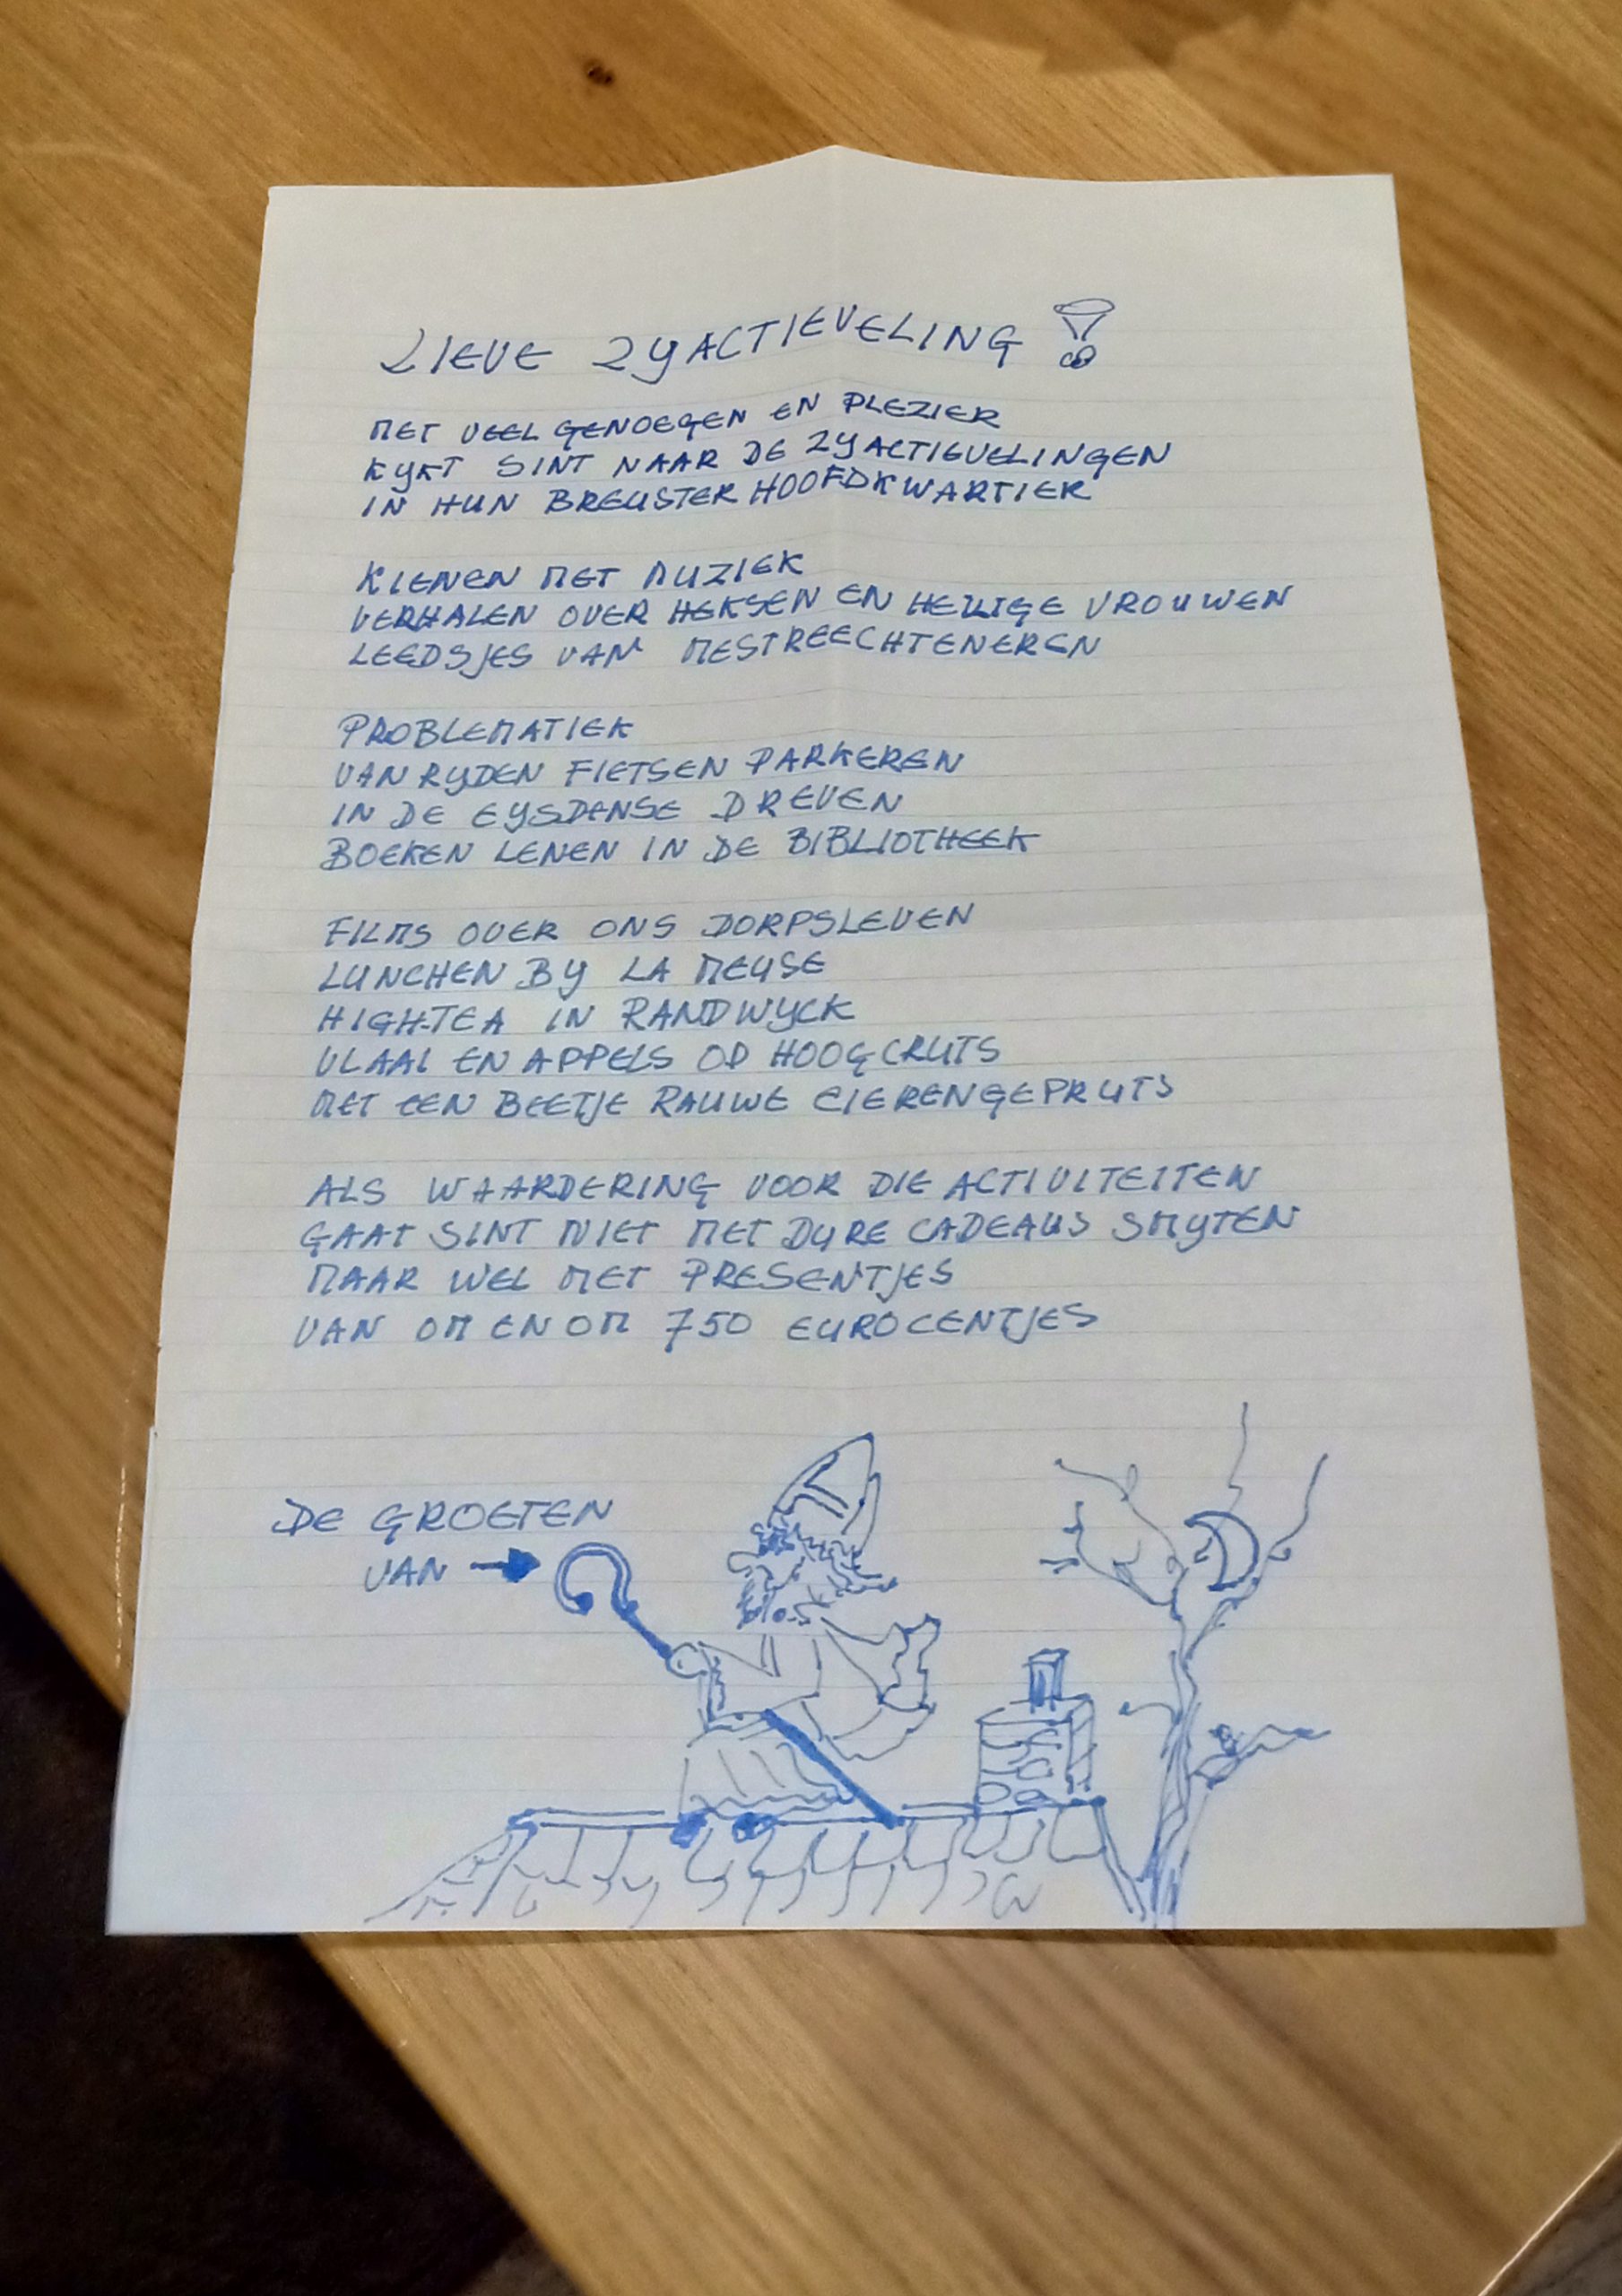 LIEVE ZYACTIEVELING!
MET VEEL GENOEGEN EN PLEZIER
KYKT SINT NAAR DE ZYACTIEVELINGEN
IN HUN BREUSTER HOOFDKWARTIER
KIENEN MET MUZIEK
VERHALEN OVER HEKSEN EN HEILIGE VROUWEN
LEEDSJES VAN MESTREECHTENEREN
PROBLEMATIEK
VAN RYDEN FIETSEN PARKEREN
IN DE EYSDENSE DREVEN
BOEKEN LENEN IN DE BIBLIOTHEEK
FILMS OVER ONS DORPSLEVEN
LUNCHEN BY LA MEUSE
HIGH-TEA IN RANDWYCK
VLAAI EN APPELS OP HOOGCRUTS
MET EEN BEETJE RAUWE EIERENGEPRUTS
ALS WAARDERING VOOR DIE ACTIVITEITEN
GAAT SINT NIET MET DURE CADEAUS SMYTEN
MAAR WEL MET PRESENTJES
VAN OM EN OM 750 EUROCENTJES
DE GROETEN
VAN →